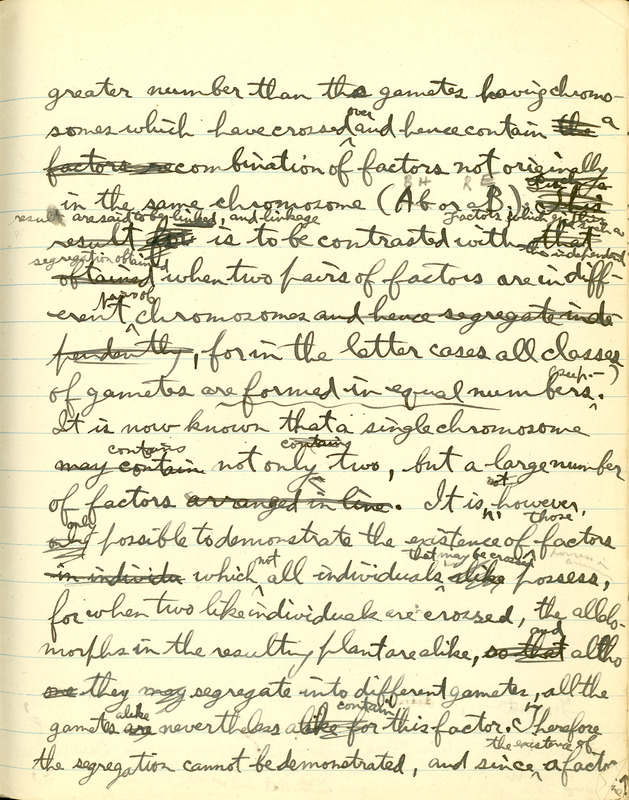 greater number than the gametes having chromo-
somes which have crossed over and hence contain the a
factors recombination of factors not originally
in the same chromosome (Ab or aB). This
result are said to be linked, and linkage Factors which
result for is to be contrasted with that
segregation obtained the independent
obtained when two pairs of factors are in diff-
erent pairs of chromosomes and hence segregate inde
pendently, for in the latter cases all classes
of gametes are formed in equal numbers.
It is now known that a single chromosome
contains contains
may contain not only two, but a large number
of factors arranged in line. It is, not however,
only possible to demonstrate the existence of those factors
in individu which not all individuals that may be crossed alike possess,
for when two like individuals are crossed, the allelo-
morphs in the resulting plant are alike, so that and altho
they may segregate into different gametes, all the
gametes are alike nevertheless alike contain for this factor. Therefore
the existence of
the segregation cannot be demonstrated, and since a factor